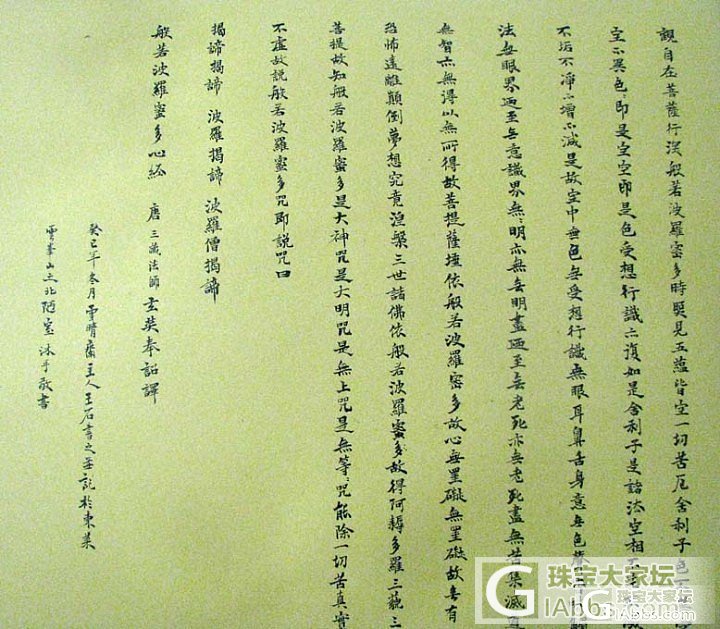 觀自在菩薩行深般若波羅蜜多時照見五蘊皆空一切苦厄舍利子色不
空不異色〻即是空空即是色受想行識亦復如是舍利子是諸法空相不
不垢不淨不增不減是故空中無色無受想行識無眼耳鼻舌身意無色聲
法無眼界迺至無意識界無〻明亦無無明盡迺至無老死亦無老死盡無苦集滅
無智亦無得以無所得故菩提薩埵依般若波羅蜜多故心無罣礙無罣礙故無有
恐怖遠離顛倒夢想究竟涅槃三世諸佛依般若波羅蜜多故得阿耨多羅三藐三
菩提故知般若波羅蜜多是大神咒是大明咒是無上咒是無等〻咒能除一切苦真實
不虛故說般若波羅蜜多咒即說咒曰
揭諦揭諦 波羅揭諦 波羅僧揭諦
般若波羅蜜多心經 唐三藏法師玄奘奉詔譯
癸巳年冬月雪晴齋主人王石書之并記於東萊
雲峯山之北陋室沐手敬書
珠宝大家坛
GIAbbs.com
珠宝大家坛